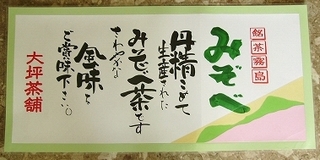 銘茶霧島
みぞべ
丹精こめて
生産された
みぞべ茶です
さわやかな
金味を
ご賞味下さい。
大坪茶舗